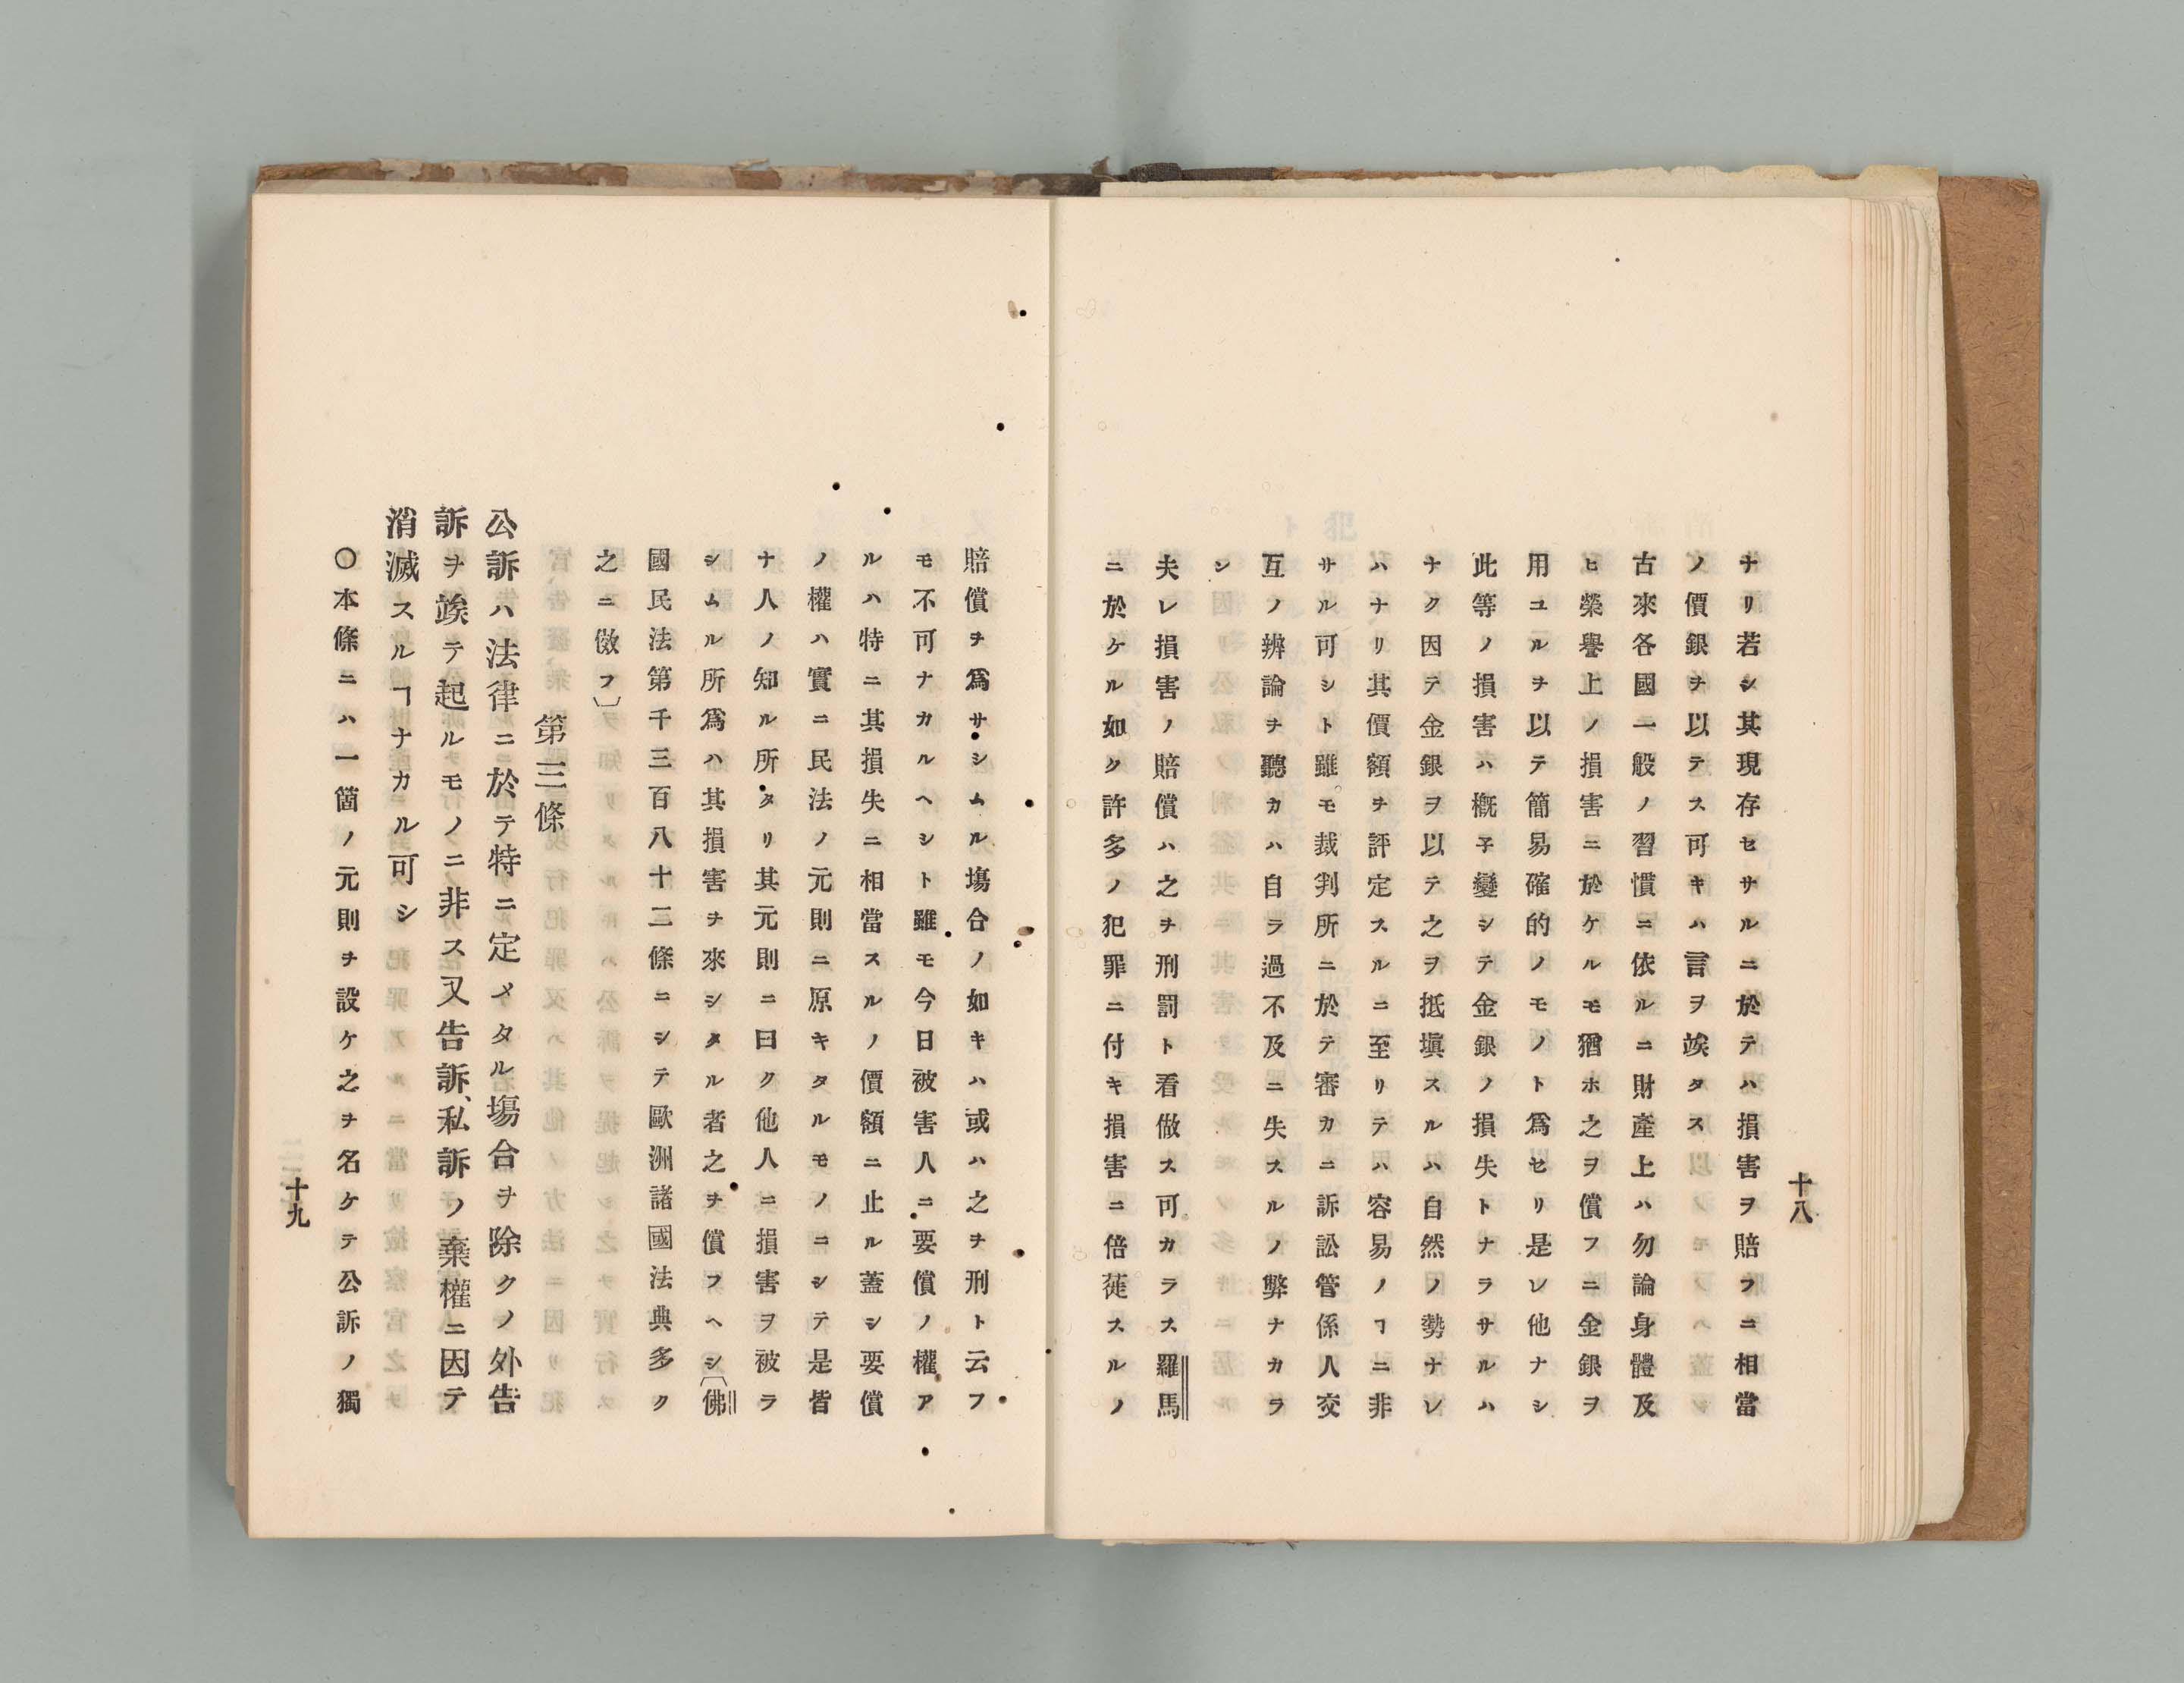 十八
ナリ若シ其現存セサルニ於テハ損害ヲ賠フニ相當
ノ價銀ヲ以テス可キハ言ヲ竢タス
古來各國一般ノ習慣ニ依ルニ財產上ハ勿論身體及
ヒ榮譽上ノ損害ニ於ケルモ猶ホ之ヲ償フニ金銀ヲ
用ユルヲ以テ簡易確的ノモノト爲セリ是レ他ナシ
此等ノ損害ハ概子變シテ金銀ノ損失トナラサルハ
ナク因テ金銀ヲ以テ之ヲ抵塡スルハ自然ノ勢ナレ
ハナリ其價額ヲ評定スルニ至リテハ容易ノヿニ非
サル可シト雖モ裁判所ニ於テ審カニ訴訟管係人交
互ノ辨論ヲ聽カハ自ラ過不及ニ失スルノ弊ナカラ
シ
夫レ損害ノ賠償ハ之ヲ刑罰ト看做ス可カラス羅馬
ニ於ケル如ク許多ノ犯罪ニ付キ損害ニ倍蓰スルノ
賠償ヲ爲サシムル塲合ノ如キハ或ハ之ヲ刑ト云フ
モ不可ナカルヘシト雖モ今日被害人ニ要償ノ權ア
ルハ特ニ其損失ニ相當スルノ價額ニ止ル蓋シ要償
ノ權ハ實ニ民法ノ元則ニ原キタルモノニシテ是皆
ナ人ノ知ル所タリ其元則ニ曰ク他人ニ損害ヲ被ラ
シムル所爲ハ其損害ヲ來シタル者之ヲ償フヘシ〔佛
國民法第千三百八十三條ニシテ歐洲諸國法典多ク
之ニ傚フ〕
第三條
公訴ハ法律ニ於テ特ニ定メタル塲合ヲ除クノ外告
訴ヲ竢テ起ルモノニ非ス又告訴、私訴ノ棄權ニ因テ
消滅スルヿナカル可シ
〇本條ニハ一箇ノ元則ヲ設ケ之ヲ名ケテ公訴ノ獨
十九